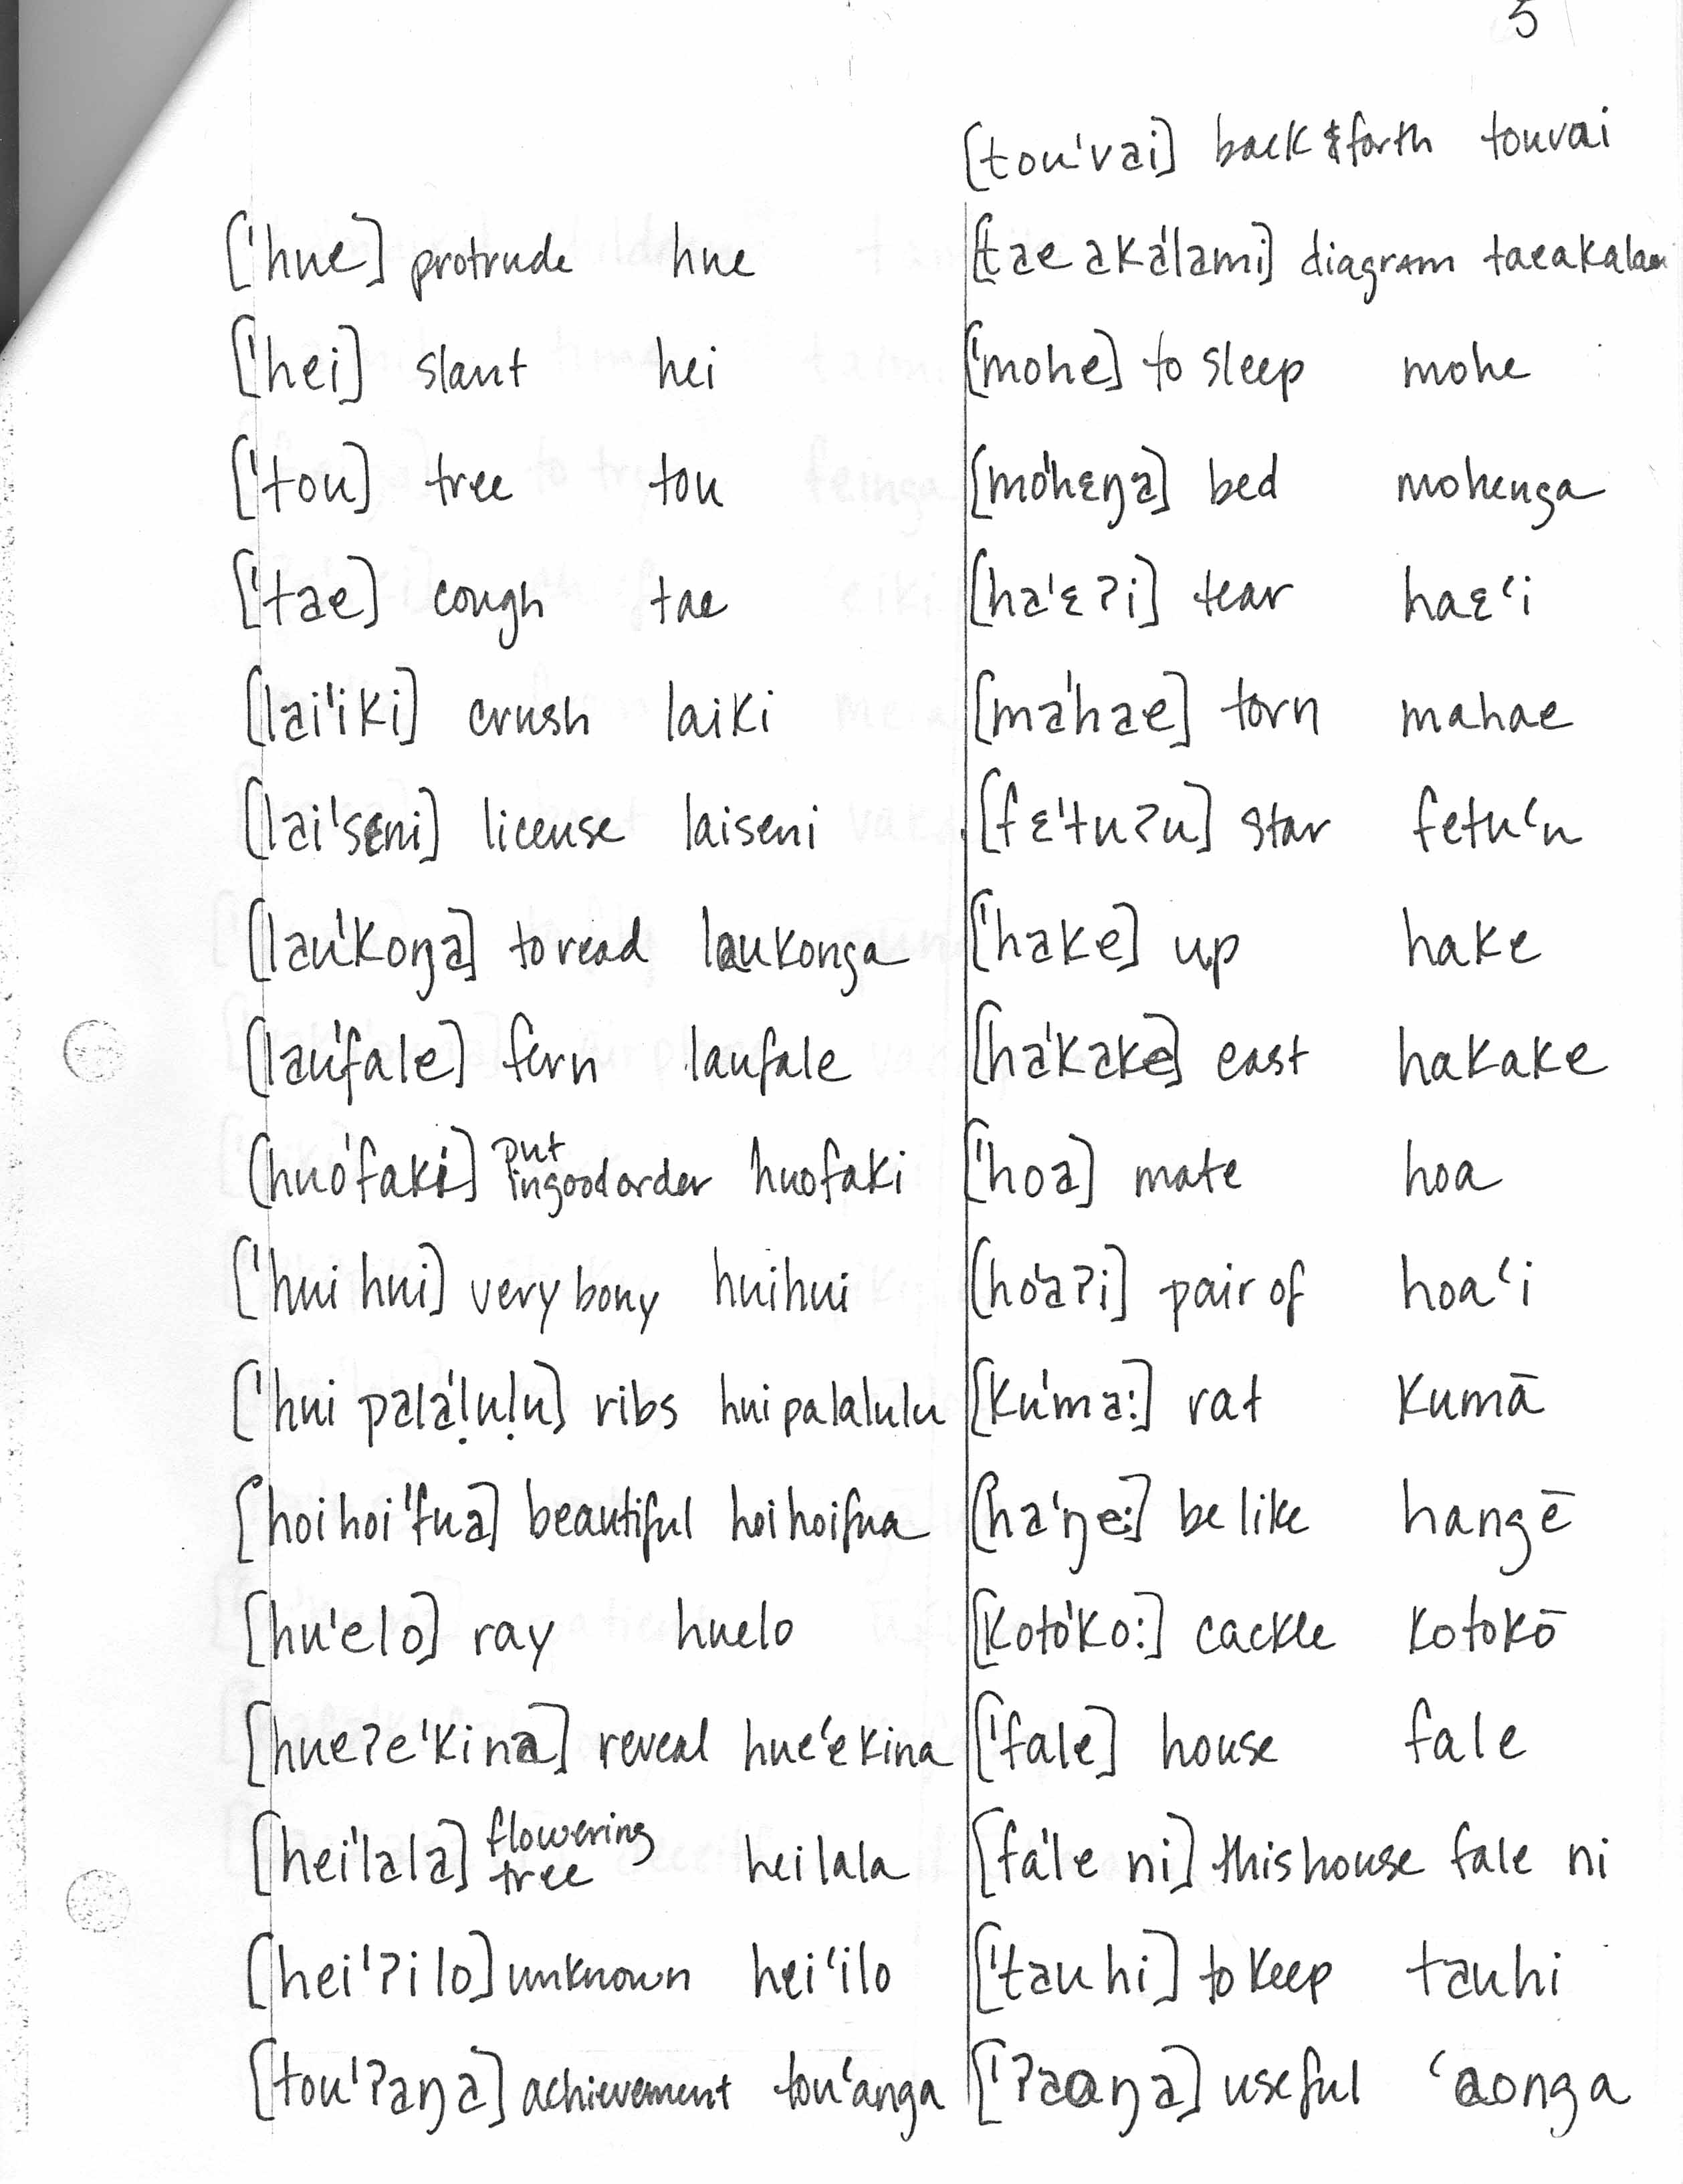 5
[tou'vai] back & forth touvai
['hue] protrude hue
['hei] slant hei
['tou] tree tou
['tae] cough tae
[lai'iki] crush laiki
[lai'sɛni] license laiseni
[lau'koŋa] to read laukonga
[lau'fale] fern laufale
[huo'faki] put in good order huofaki
['hui hui] very bony huihui
['hui pala'ḷuḷu] ribs hui palalulu
[hoihoi'fua] beautiful hoihoifua
[hu'elo] ray huelo
[hueʔe'kina] reveal hue‘ekina
[hei'lala] flowering tree heilala
[hei'ʔilo] unknown hei‘ilo
[tou'ʔaŋa] achievement tou‘anga
[tae aka'lami] diagram taeakalam
['mohe] to sleep mohe
[mo'hɛŋa] bed mohenga
[ha'ɛʔi] tear haɛ‘i
[ma'hae] torn mahae
[fɛ'tuʔu] star fetu‘u
['hake] up hake
[ha'kake] east hakake
['hoa] mate hoa
[ho'aʔi] pair of hoa‘i
[ku'ma:] rat kumā
[ha'ŋe:] be like hangē
[koto'ko:] cackle kotokō
['fale] house fale
[fa'le ni] this house fale ni
['tau hi] to keep tauhi
['ʔaoŋa] useful ‘aonga